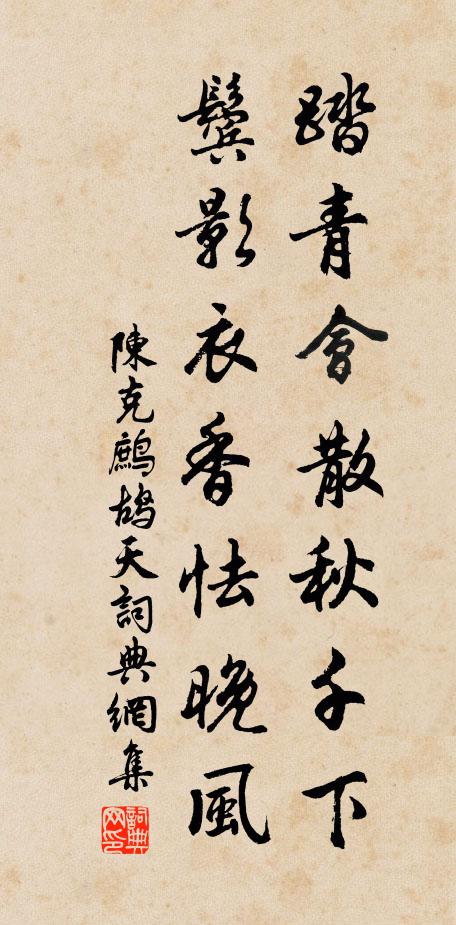 踏青會散秋千下
鬢影衣香怯晚風
陳克鷓鴣天詞典網集
詞典网印